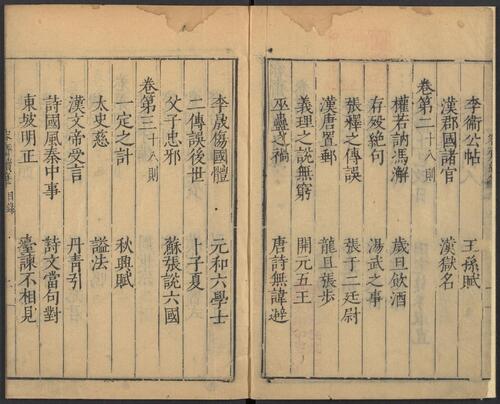 李衛公帖 王孫賦
漢郡國諸官 漢獄名
卷第二 十八則
權若訥馮澥 歲旦飲酒
存歿絕句 湯武之事
張釋之傳誤 張于二廷尉
漢唐置郵 龍且張步
義理之說無窮 開元五王
巫蠱之禍 唐詩無諱避
李晟傷國體 元和六學士
二傳誤後世 卜子夏
父子忠邪 蘇張說六國
卷第三 十八則
一定之計 秋興賦
太史慈 謚法
漢文帝受言 丹青引
詩國風秦中事 詩文當句對
東坡明正 臺諫不相見
目錄